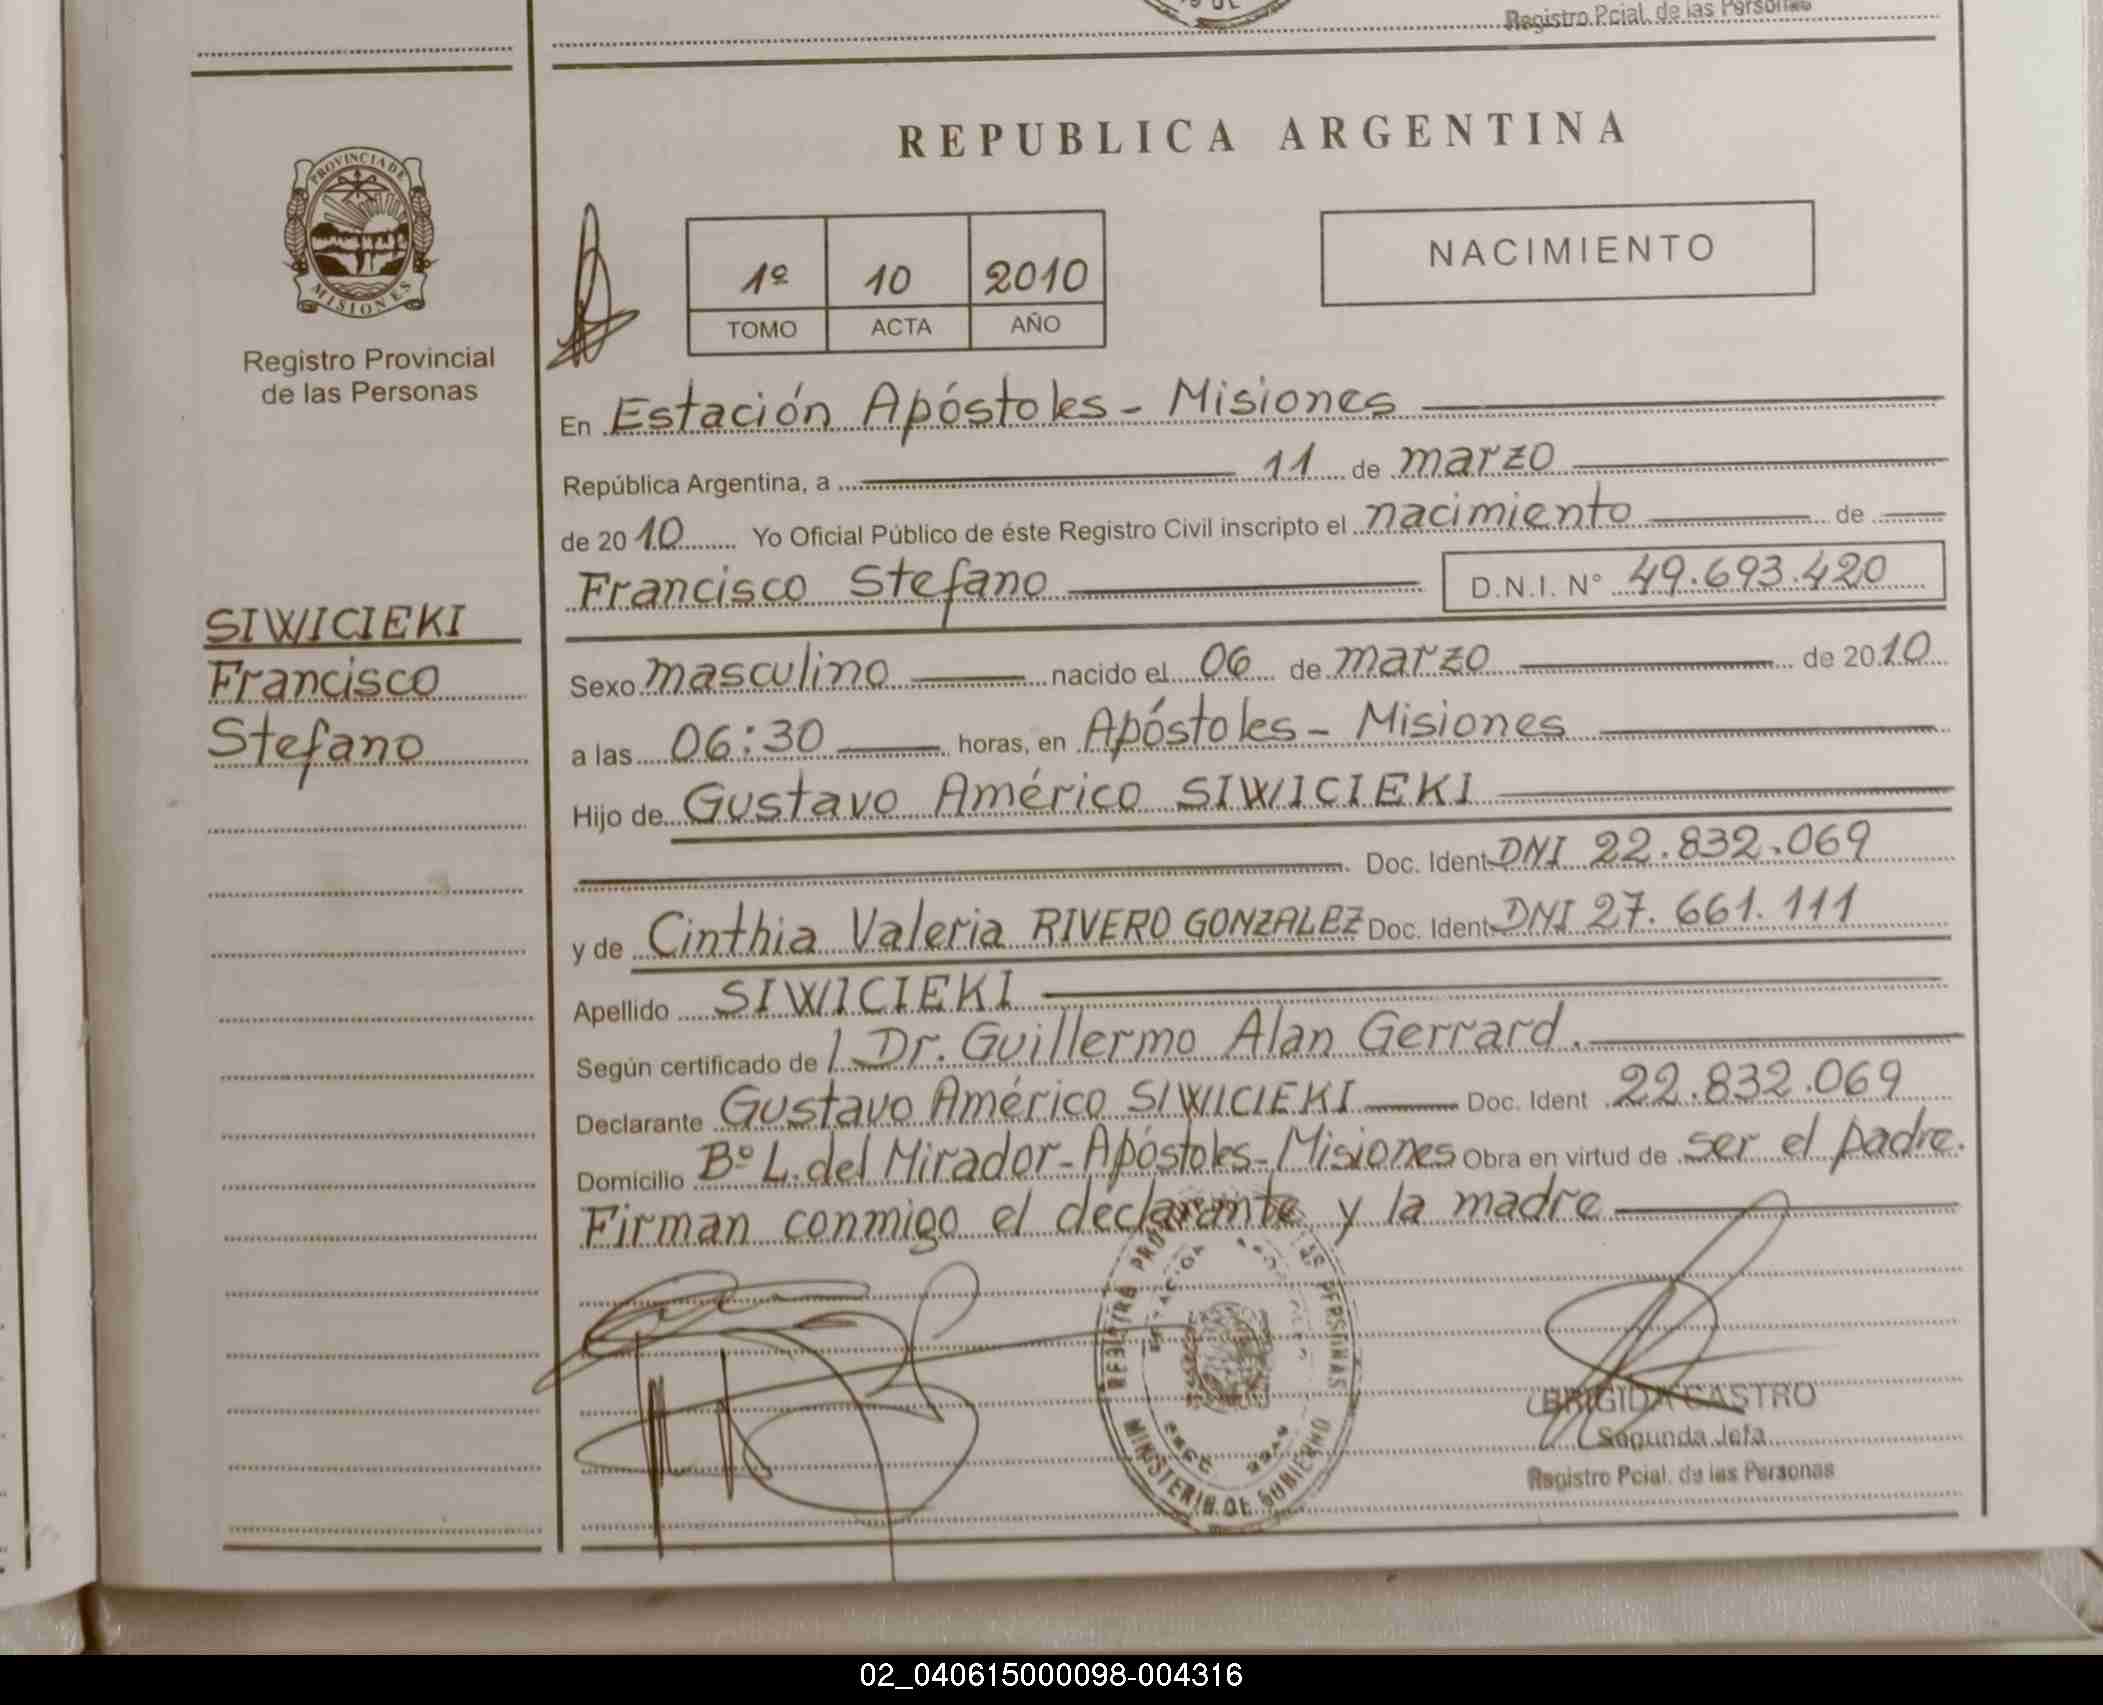 Registro Pcial. de las Personas
REPUBLICA ARGENTINA
PROVINCIA DE
MISIONES
Registro Provincial
de las Personas
1º 10 2010
TOMO ACTA AÑO
NACIMIENTO
En Estación Apóstoles - Misiones
República Argentina, a 11 de marzo
de 2010 Yo Oficial Público de éste Registro Civil inscripto el nacimiento de
Francisco Stefano D.N.I. N° 49.693.420
SIWICIEKI
Francisco
Stefano
Sexo masculino nacido el 06 de marzo de 2010
a las 06:30 horas, en Apóstoles - Misiones
Hijo de Gustavo Américo SIWICIEKI
Doc. Ident DNI 22.832.069
y de Cinthia Valeria RIVERO GONZALEZ Doc. Ident DNI 27.661.111
Apellido SIWICIEKI
Según certificado de Dr. Guillermo Alan Gerrard.
Declarante Gustavo Américo SIWICIEKI Doc. Ident 22.832.069
Domicilio Bº L. del Mirador - Apóstoles - Misiones Obra en virtud de ser el padre.
Firman conmigo el declarante y la madre
MINISTERIO DE GOBIERNO
BRIGIDA CASTRO
Segunda Jefa
Registro Pcial. de las Personas
02_040615000098-004316